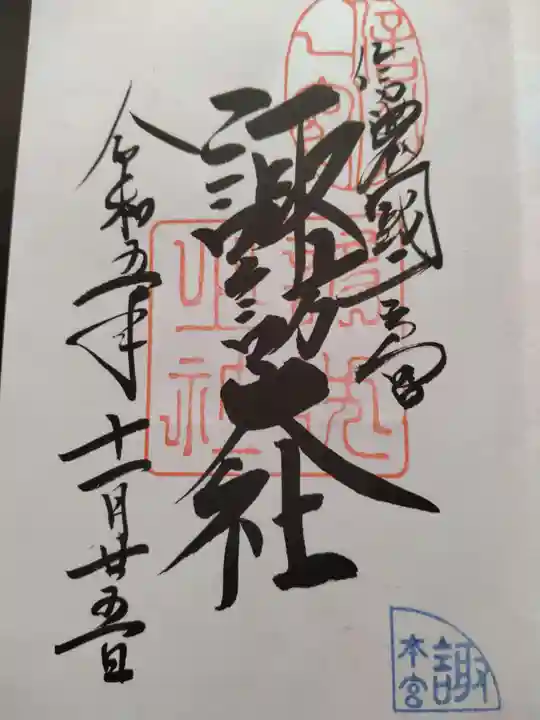 信濃國一之宮
諏訪大社
令和五年十一月廿五日
本宮